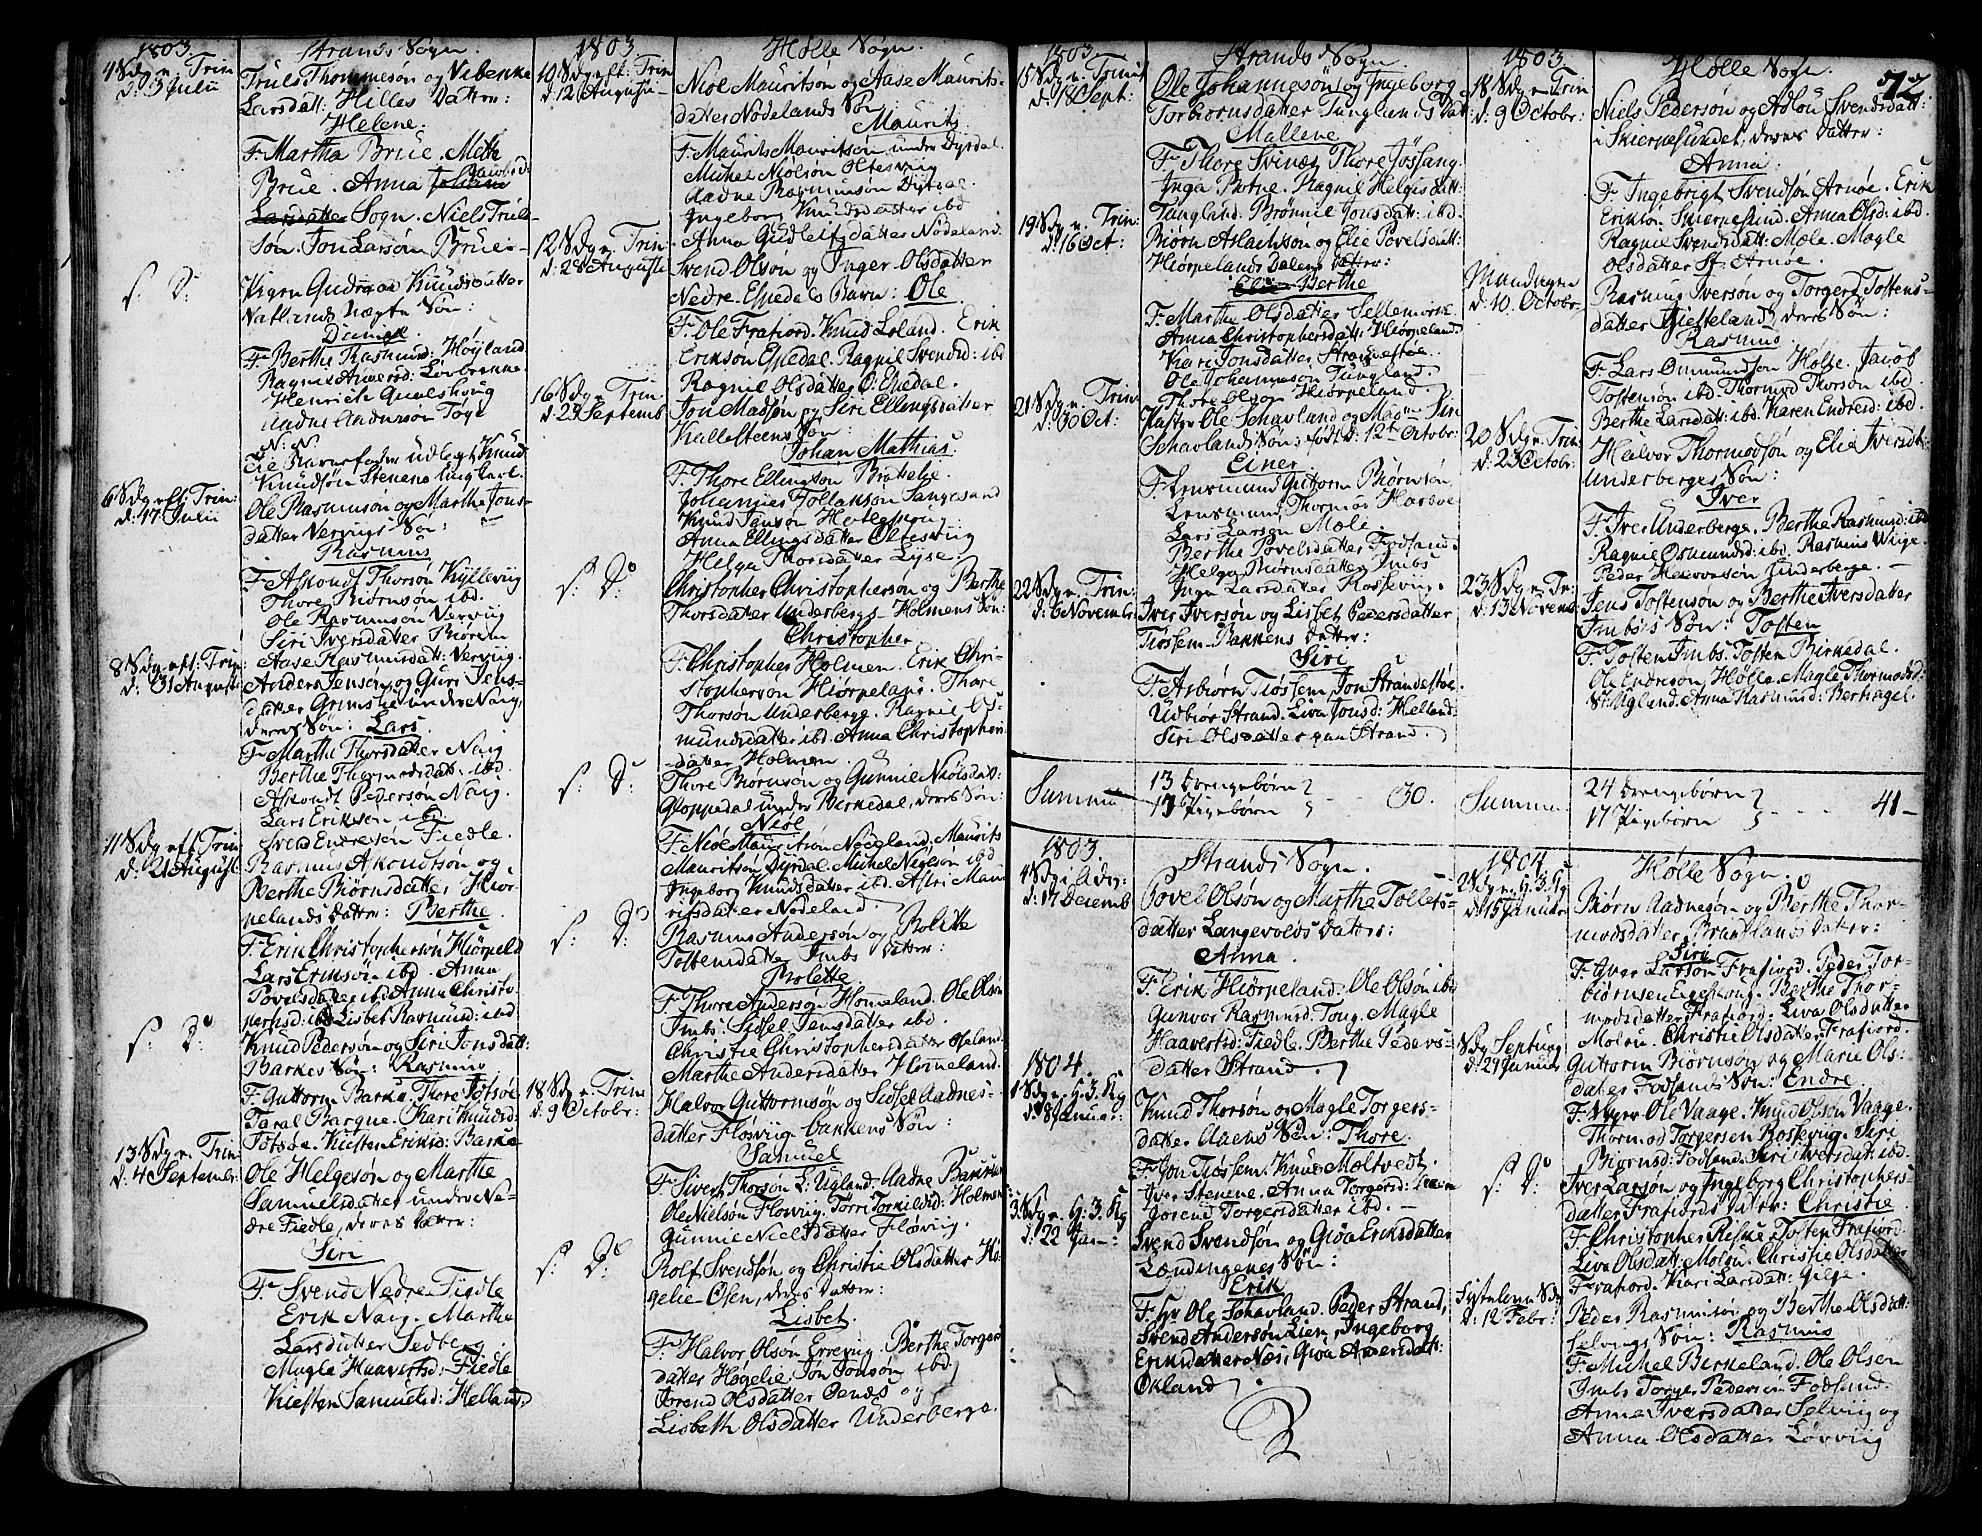 1803.
Strands Sogn.
4 Sdg. e. Trin
d. 3 Julii
Truls Thommesøn og Vibenke
Larsdatt: Hilles Datter:
Helene.
F. Martha Brue. Mette
Brue. Anna Jacobsd:
Larsdatter Sogn. Niels Truls-
søn. Jon Larsøn Brue.
s: D:
Pigen Gudrua Knudsdatter
Natlands uægte Søn:
F. Berthe Rasmusd: Høyland
Ragnil Andersd:
Henrich Qualshoug
Aadne Aadnesøn Toge
N: N:
udlegt Knud
Knudsøn Stenens Ungkarl.
6 Sdg. eft: Trin:
d: 17 Julii
Ole Rasmusøn og Marthe Jons-
datter Vervigs Søn:
Rasmus
F. Askondt Thorsøn Kyllevig
Thore Biørnsøn ibd.
Ole Rasmusøn Vervig
Siri Iversdatter Biørem
Aase Rasmusdatt: Vervig.
8 Sdg. eft: Trin:
d: 31 Augusti
Anders Jensen og Guri Jens-
datter Grimslie under Naig,
deres Søn: Lars.
F. Marthe Thorsdatter Naig
Berthe Thormodsdatt: ibd.
Askondt Pedersøn Naig.
Lars Eriksøn ibd.
Svend Endresøn Fiedle.
11 Sdg. eft Trin:
d: 21 August:
Rasmus Askondtsøn og
Berthe Biørnsdatter Hiør-
pelands Datter: Berthe.
F. Erik Christophersøn Hiørpeld
Lars Eriksøn ibd. Anna
Povelsdatter ibd Anna Christo-
phersd: ibd Lisbet Rasmusd: ibd
s: D:
Knud Pedersøn og Siri Jonsdatt:
Barkes Søn: Rasmus
F. Guttorm Barka. Thore Jøtsøe
Taral Barque. Kari Knudsd:
Jøtsøe. Kiesten Eriksd: Barke
13 Sdg. e. Trin
d: 4 Septembr:
Ole Helgesøn og Marthe
Samuelsdatter under Ne-
dre Fiedle, deres Datter:
Siri
F. Svend Nedre Fiedle
Erik Naig. Marthe
Larsdatter Sedberg
Magle Haavertsd: Fiedle
Kiesten Samuelsd: Helland.
1803
Hølle Sogn.
10 Sdg. eft: Trin
d: 12 Augusti
Niøl Mauritsøn og Aase Maurits-
datter Nødelands Søn
Maurits
F. Maurits Mauritsøn under Dyrdal
Michel Niølsøn Oltesvig
Aadne Rasmusøn Dyrdal.
Ingeborg Knudsdatter ibd
Anna Gudleifsdatter Nødeland.
12 Sdg. e. Trin
d: 28 Augusti
Svend Olsøn og Inger Olsdatter
Nedre Espedals Barn: Ole
F. Ole Frafiord. Knud Løland. Erik
Eriksøn Espedal. Ragnil Svendsd: ibd
Ragnil Olsdatter Ø: Espedal.
16 Sdg. e. Trin
d. 25 Septemb:
Jon Madsøn og Siri Ellingsdatter
Kallesteens Søn:
Johan Mathias:
F. Thore Ellingsøn Bratteli
Johannes Tollaksøn Sangesand
Knud Jansøn Hatleskoug
Anna Ellingsdatter Oltesvig
Helga Thorsdatter Lyse.
s: D:
Christopher Christophersøn og Berthe
Thorsdatter Underbergs Holmens Søn:
Christopher
F. Christopher Holmen. Erik Chri-
stophersøn Hiørpeland. Thore
Thorsøn Underberge. Ragnil Os-
mundsdatter ibd. Anna Christopher-
datter Holmen.
s: D:
Thore Biørnsøn og Gunnie Niølsdatt:
Gloppedal under Birkedal, deres Søn:
Niøl
F. Niøl Mauritsøn Nødeland, Maurits
Mauritsøn Dyrdal. Michel Nielsøn ibd
Ingeborg Knudsdatter ibd. Astri Mau-
ritsdatter Nødeland.
s: D:
Rasmus Andersøn og Bolette
Tostensdatter Imbs Datter:
Bolette
F. Thore Andersøn Hommeland. Ole Olsøn
Imbs. Sidsel Jensdatter ibd.
Christie Christophersdatter Høland
Marthe Andersdatter Hommeland.
18 Sdg. e. Trin
d: 9 Octobr:
Halvor Guttormsøn og Sidsel Aadnes-
datter Fløsvig bakkens Søn:
Samuel
F. Sivert Thorsøn L: Ugland. Aadne Bakken
Ole Nielsøn Fløsvig. Torri Torkildsd: Holmen
Gunnie Nielsdatter Fløsvig.
s: D:
Rolf Svendsøn og Christie Olsdatter Hø-
gelie Osen, deres Datter:
Lisbet.
F. Halvor Olsøn Erresvig. Berthe Torger-
datter Høgelie. Jøn Jonsøn ibd
Jorend Olsdatter Benæs og
Lisbeth Olsdatter Underberge.
1803
Strands Sogn.
15 Sdg. e. Trinit
d. 18 Sept:
Ole Johannesøn og Ingeborg
Torbiørnsdatter Tunglands Dat
Mallene
F. Thore Svines, Thore Jøssang.
Inga Botne. Ragnil Helgisdatt:
Tungland. Brønnie Jonsdatt: ibd.
19 Sdg. e. Trin:
d. 16 Oct:
Biørn Aslachsøn og Elie Povelsdatt:
Hiørpelands Dalens Datter:
Berthe
F. Marthe Olsdatter Sellemork.
Anna Christophersdatt: Hiørpeland.
Kari Jonsdatter Strandestøe.
Ole Johannesøn Tungland.
Thore Olsøn Hiørpeland.
21 Sdg. e. Trin:
d: 30 Oct:
Pastor Ole Schavland og Mag: Siri
Schavlands Søn: født d: 12t Octobr:
Einer
F. Lensmand Guttorm Biørnsøn,
Lensmand Thormod Hatløe
Lars Larsøn Mole.
Berthe Povelsdatter Fodsand.
Helga Biørnsdatter Imbs
Inga Larsdatter Rossevig.
22 Sdg. e. Trin:
d: 6 Novembr
Iver Iversøn og Lisbet Pedersdatter
Tiøssem Bakkens Datter:
Siri
F. Asbiørn Tiøssem, Jon Strandestøe.
Udbiør Strand. Liva Jonsd: Helland.
Siri Olsdatter paa Strand.
Summa
13 Drengebørn
17 Pigebørn
30.
1803.
Strands Sogn.
4 Sdg. i Adv:
d: 17 Decemb
Povel Olsøn og Marthe Tollets-
datter Langevolds Datter:
Anna.
F. Erik Hiørpeland. Ole Olsøn ibd
Gunvor Rasmusd: Toug. Magle
Haavertsd: Fiedle. Berthe Peders-
datter Strand.
1804.
1 Sdg. e. H: 3: Kg
d: 8 Janua:
Knud Thorsøn og Magle Torgers-
datter Aaens Søn: Thore.
F. Jon Tiøssem. Knud Moltvedt.
Iver Stenene. Anna Torgersd:
Jorend Torgersdatter ibd.
3: Sdg. e. H: 3. Kg
d: 22 Jan:
Svend Svendsøn og Gioa Eriksdatter
Lændingenes Søn:
Erik
F. Hr Ole Schavland. Peder Strand,
Svend Andersøn Lien, Ingeborg
Eriksdatter Næs, Gioa Andersdatt:
Økland.
1803
Hølle Sogn.
72
18 Sdg. e. Trin
d: 9 Octobr:
Niels Pedersøn og Adlou Svendsdatt:
i Skiernesundet, deres Datter:
Anna.
F. Ingebrigt Svendsøn Arnøe. Erik
Erikson Skiernesund. Anna Olsd: ibd.
Ragnil Svendsdatt: Mæle. Magle
Olsdatter St. Arnøe.
Mandagen
d: 10. Octobr:
Rasmus Iversøn og Torgerd Tostens-
datter Gietteland, deres Søn:
Rasmus
F. Lars Ommundsen Hølle. Jacob
Tostensøn ibd. Thormod Thorsøn ibd.
Berthe Larsdatt: ibd. Karen Endresd: ibd.
20 Sdg. e. Trin:
d: 23 Octobr:
Halvor Thormodsøn og Elie Iversdt:
Underberges Søn:
Iver
F. Iver Underberge. Berthe Rasmusd: ibd
Ragnil Osmundsd: ibd. Rasmus Wiige.
Peder Halvorsøn Underberge.
23 Sdg. e. Tr:
d: 13 Novemb
Jens Tostensøn og Berthe Iversdatter
Imbs's Søn: Tosten
F. Tosten Imbs. Tosten Birkedal.
Ole Endresøn Hølle. Magle Thormodsd:
St. Ugland. Anna Rasmusd: Berhagel.
Summa
24 Drengebørn
17 Pigebørn
41
1804
Hølle Sogn.
2 Sdg. e. H. 3. Kg
d. 15 Januar
Biørn Aadnesøn og Berthe Thor-
modsdatter Brattlands Datter:
Siri
F. Iver Larsøn Frafiord. Peder Tor-
biørnsen Eegeskoug. Berthe Thor-
modsdatter Frafiord. Liva Olsdatter
Molou. Christie Olsdatter Frafiord.
Sdg. Septuag
d: 29 Januar
Guttorm Biørnsøn og Marie Ols-
datter Fodsands Søn: Endre
F. Ole Vaage. Knud Olsøn Vaage.
Thormod Torgersen Rossevig. Siri
Biørnsd: Fodsand. Siri Iversdatt: ibd.
s: D:
Iver Larsøn og Ingeborg Christophers-
datter Frafiords Datter: Christie
F. Christopher Reske. Tosten Frafiord
Liva Olsdatt: Molou. Christie Olsdatter
Frafiord. Kari Larsdatt: Gilge.
d: 12 Febr:
Peder Rasmusøn og Berthe Olsdatt:
Selvigs Søn: Rasmus
F. Michel Berkeland. Ole Olsen
Imbs. Torger Pedersen Fodsand.
Anna Iversdatter Selviig og
Anna Olsdatter Løvviig